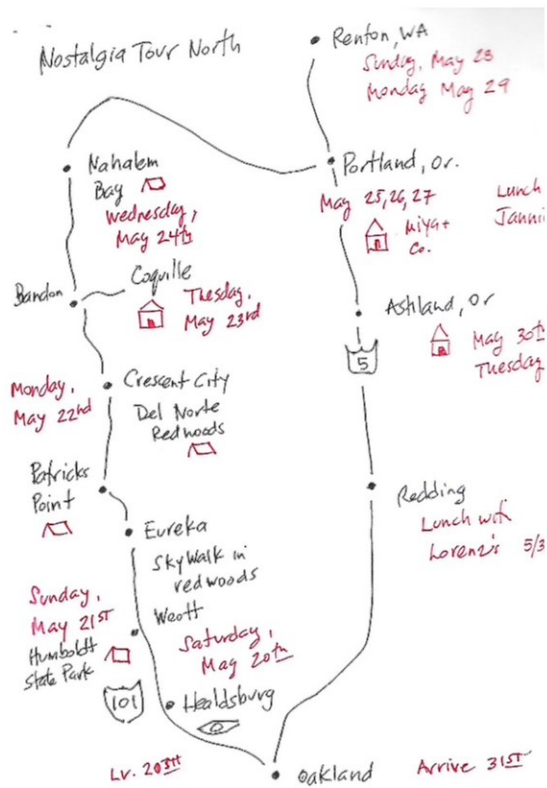 Nostalgia Tour North
Renton, WA
Sunday, May 28
Monday May 29
Nahalem
Bay
Wednesday,
May 24th
Portland, Or.
May 25, 26, 27
Miya +
Co.
Lunch
Janni
Coquille
Bandon
Tuesday,
May 23rd
Ashland, Or
5
May 30th
Tuesday
Monday,
May 22nd
Crescent City
Del Norte
Redwoods
Patricks
Point
Redding
Lunch with
Lorenz's 5/3
Eureka
Skywalk in
redwoods
Sunday,
May 21ST
Weott
Humboldt
State Park
Saturday,
May 20th
101
Healdsburg
Lv. 20TH
Oakland
Arrive 31ST